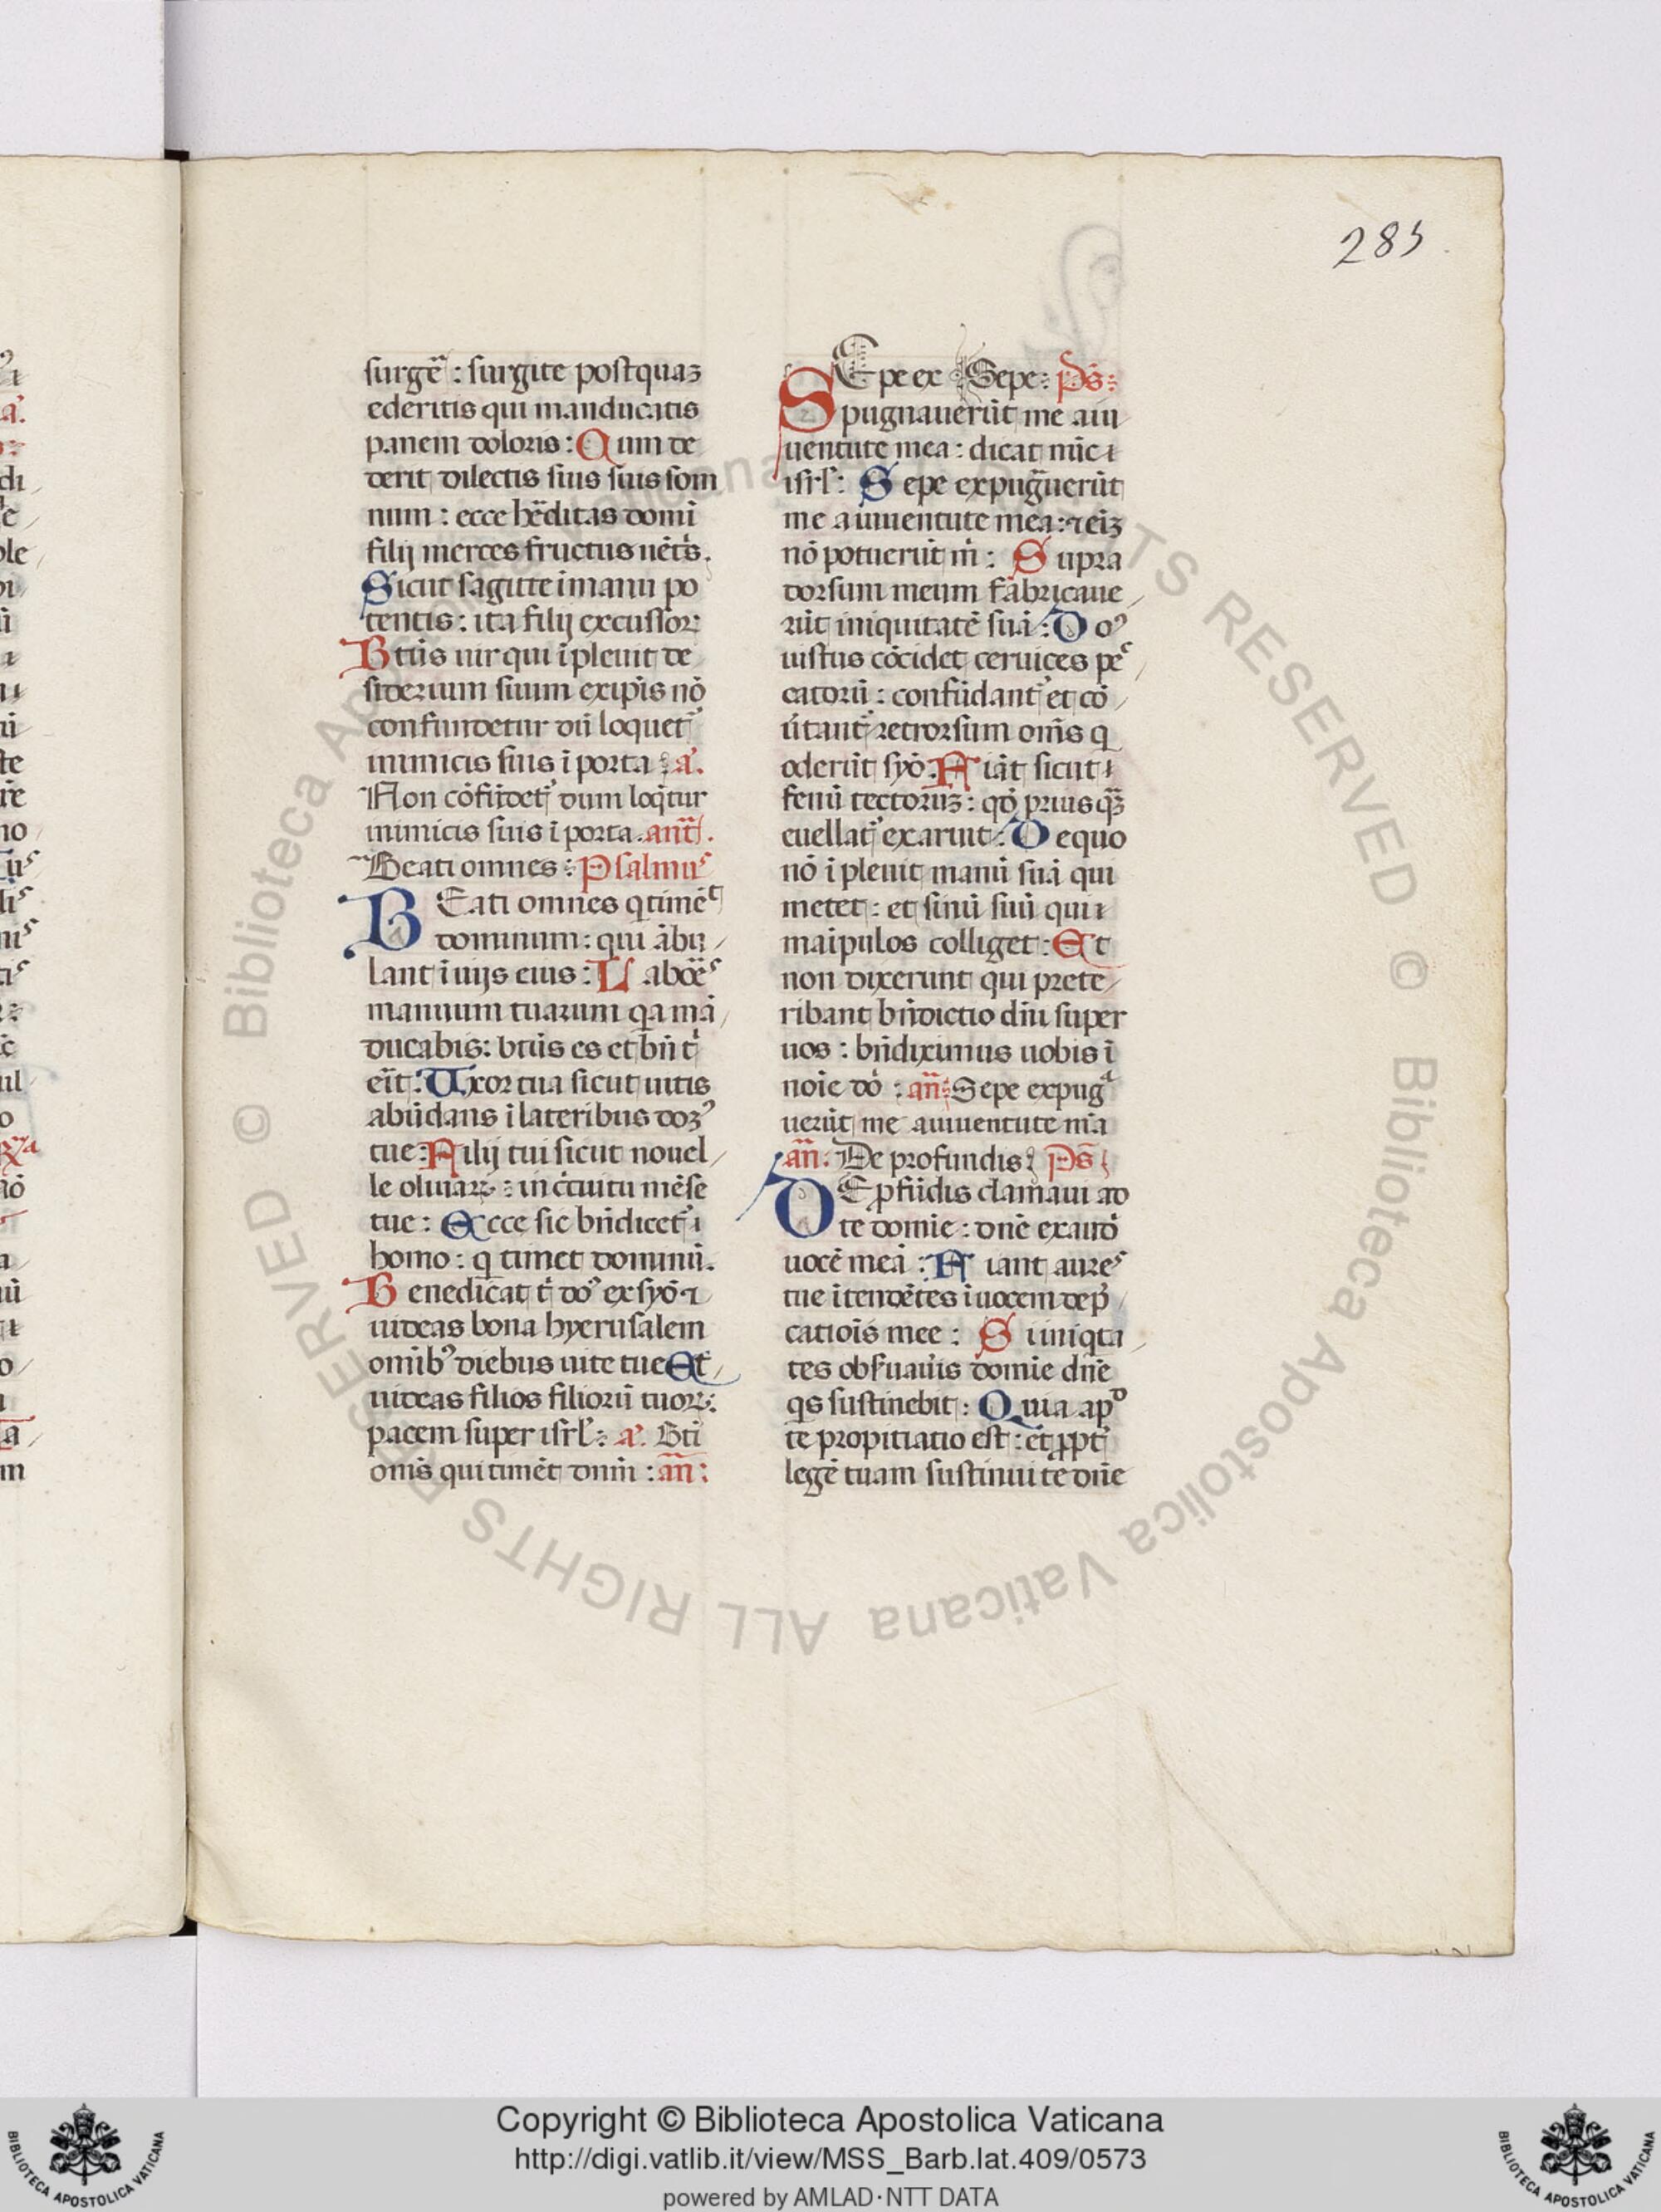 285
surgē : surgite postquaꝫ
ederitis qui manducatis
panem doloris : Qum de
derit dilectis suis suis som
num : ecce hēditas domī
filij merces fructus uētˢ.
Sicut sagitte ī manu po
tentis : ita filij excussoꝝ
Btūs uir qui īpleuit de
siderium suum exipīs nō
confundetur dū loquetʳ
inimicis suis ī porta : aʳ.
Non cōfūdetʳ dum loqͥtur
inimicis suis ī porta . anᷓt .
Beati omnes : Psalmuˢ
BEati omnes q timēᵗ
dominum : qui ābu /
lant ī uijs eius : Laboēˢ
manuum tuarum qͣ mā /
ducabis : btūs es et bn̄ tͥ
eīt : Uxor tua sicut uitis
abūdans ī lateribus doꝫʾ
tue : Filij tui sicut nouel /
le oliuaꝝ : in cͥtuitu mēse
tue : Ecce sic bn̄dicetʳ
homo : q timet dominū .
Benedicat tͥ doʾ ex syō ⁊
uideas bona hyerusalem
omībʾ diebus uite tue Et /
uideas filios filiorū tuoꝝ :
pacem super isrl̄ : aʳ. Bti
omīs qui timēt dnm̄ : an̄ :
SEpe ex Sepe : ps̄ :
pugnauerūt me a iu
uentute mea : dicat nūc
isrl̄ : Sepe expugᷓuerūt
me a iuuentute mea : ⁊eīꝫ
nō potuerūt m̄ : Supra
dorsum meum fabricaue /
rūt iniquitatē suā : Doʾ
iustus cōcidet ceruices peᶜ /
catorū : confūdantʳ et cō /
ūtantʳ retrorsum omīs q
oderūt syō : Fiāt sicut
fenū tectoruꝫ : qd̄ priusqᷓꝫ
euellatʳ exaruit : De quo
nō īpleuit manū suā qui
metet : et sinū suū qui
maīpulos colliget : Et
non dixerunt qui prete /
ribant bn̄dictio dn̄i super
uos : bn̄diximus uobis ī
noīe dō : an̄ : Sepe expugᵃ
uerūt me a iuuentute mīa
an̄ : De profundis : Ps̄
DE ꝓfūdis clamaui ad
te domīe : dnē exaudͥ
uocē meā : Fiant aureˢ
tue ītendētes ī uocem dep̄ /
catioīs mee : Si iniqta /
tes obẜuaūis domīe dnē
qͥs sustinebit : Quia apᵈ
te propitiatio est : et ꝓptʳ
legē tuam sustinui te dnē
© Biblioteca Apostolica Vaticana ALL RIGHTS RESERVED © Biblioteca Apostolica Vaticana ALL RIGHTS RESERVED
Copyright © Biblioteca Apostolica Vaticana
http://digi.vatlib.it/view/MSS_Barb.lat.409/0573
powered by AMLAD·NTT DATA
BIBLIOTECA APOSTOLICA VATICANA
BIBLIOTECA APOSTOLICA VATICANA